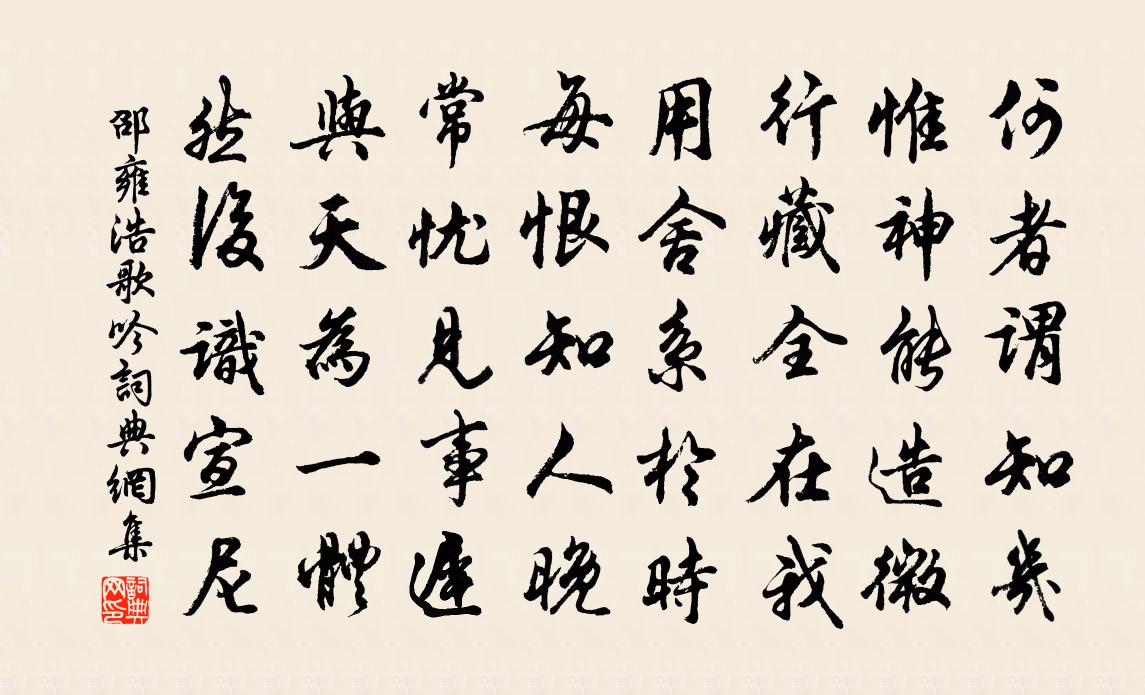 何者謂知幾
惟神能造微
行藏全在我
用舍系於時
每恨知人晚
常忧見事遲
與天為一體
然後識宣尼
邵雍浩歌吟詞典網集
詞典网印